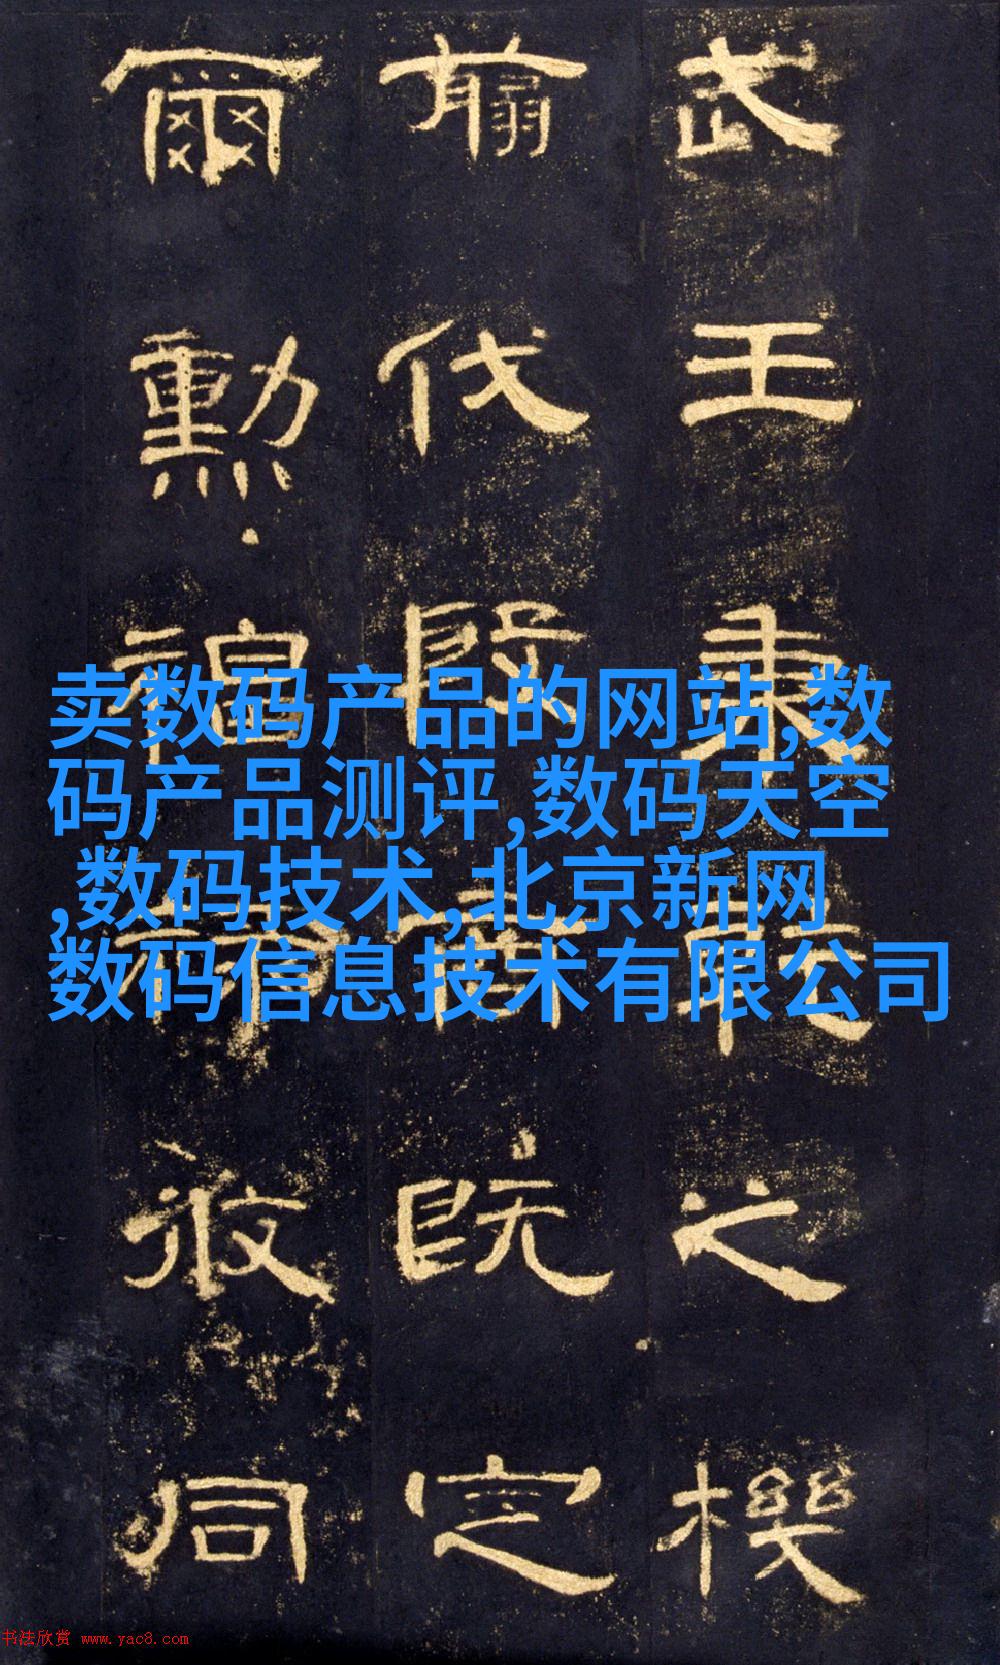 武王秉乾之機
翦伐殷商既定
爾勳福祿攸同
卖数码产品的网站,数
码产品测评,数码天空
,数码技术,北京新网
数码信息技术有限公司
书法欣赏 www.yac8.com